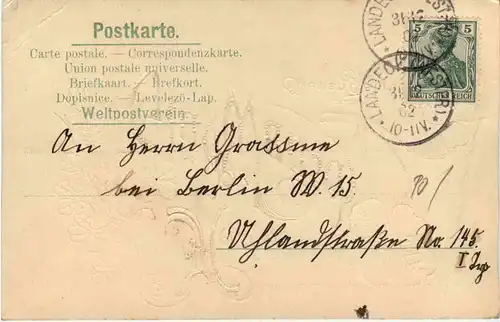 Postkarte.
Carte postale. — Correspondenzkarte.
Union postale universelle.
Briefkaart. — Brefkort.
Dopisnice. — Levelező-Lap.
Weltpostverein.
5 5
DEUTSCHES REICH
LANDECK
31 12
02
LANDECK
02
10-11 V.
An Herrn Grassme
bei Berlin W. 15.
Uhlandstraße No. 145.
I